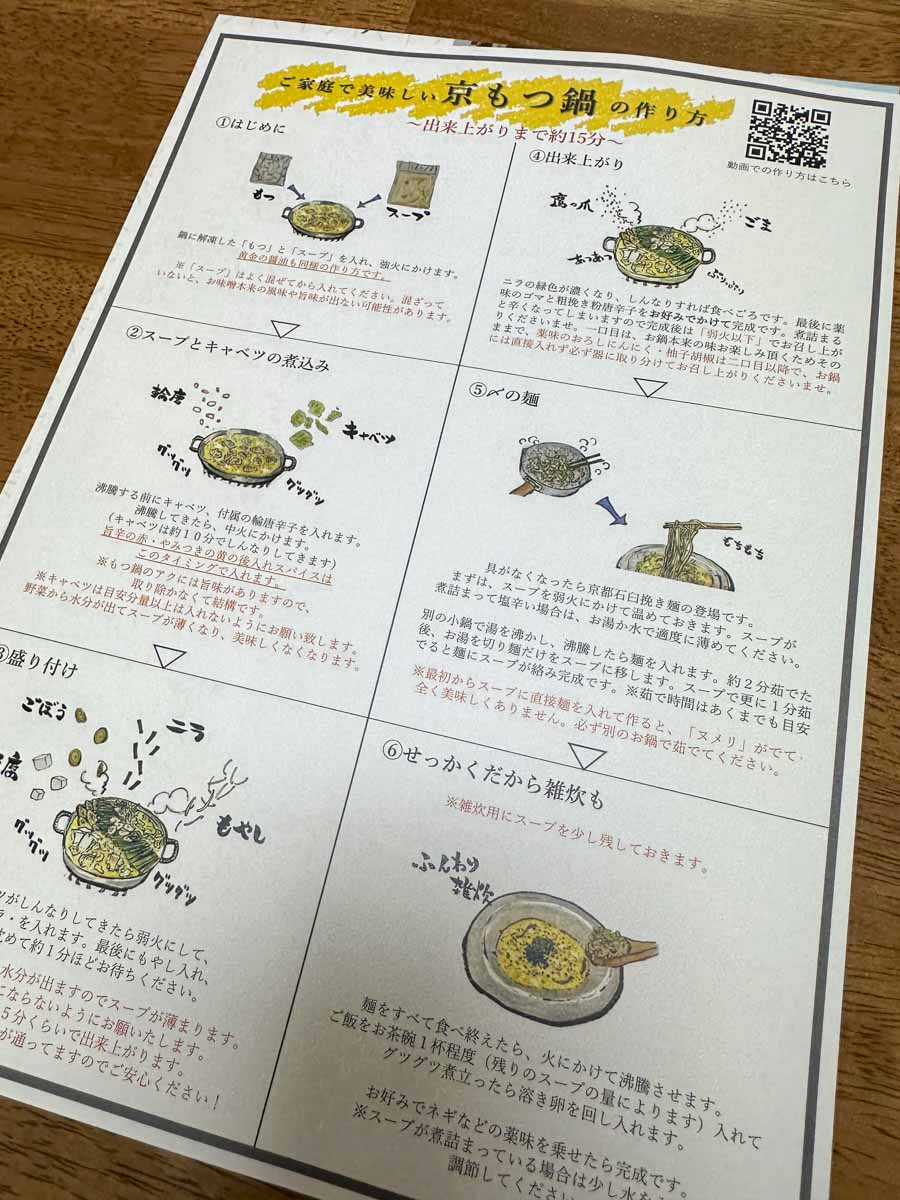 ご家庭で美味しい京もつ鍋の作り方
〜出来上がりまで約15分〜
動画での作り方はこちら
①はじめに
もつ
スープ
鍋に解凍した「もつ」と「スープ」を入れ、強火にかけます。
黄金の醤油も同様の作り方です。
※「スープ」はよく混ぜてから入れてください。混ざって
いないと、お味噌本来の風味や旨味が出ない可能性があります。
②スープとキャベツの煮込み
キャベツ
グツグツ
グツグツ
沸騰する前にキャベツ、付属の輪唐辛子を入れます。
沸騰してきたら、中火にかけます。
(キャベツは約１０分でしんなりしてきます)
旨辛の赤・やみつきの黄の後入れスパイスは
このタイミングで入れます。
※もつ鍋のアクには旨味がありますので、
取り除かなくて結構です。
※キャベツは目安分量以上は入れないようにお願い致します。
野菜から水分が出てスープが薄くなり、美味しくなくなります。
盛り付け
ごぼう
ニラ
もやし
グツグツ
グツグツ
がしんなりしてきたら弱火にして、
を入れます。最後にもやし入れ、
めて約１分ほどお待ちください。
水分が出ますのでスープが薄まります。
にならないようにお願いたします。
５分くらいで出来上がります。
が通ってますのでご安心ください！
④出来上がり
鷹の爪
ごま
あつあつ
ぷりぷり
ニラの緑色が濃くなり、しんなりすれば食べごろです。最後に薬
味のゴマと粗挽き粉唐辛子をお好みでかけて完成です。煮詰まる
と辛くなってしまいますので完成後は「弱火以下」でお召し上が
りくださいませ。一口目は、お鍋本来の味お楽しみ頂くためその
ままで、薬味のおろしにんにく・柚子胡椒は二口目以降で、お鍋
には直接入れず必ず器に取り分けてお召し上がりくださいませ。
⑤〆の麺
もちもち
具がなくなったら京都石臼挽き麺の登場です。
まずは、スープを弱火にかけて温めておきます。スープが
煮詰まって塩辛い場合は、お湯か水で適度に薄めてください。
別の小鍋で湯を沸かし、沸騰したら麺を入れます。約２分茹でた
後、お湯を切り麺だけをスープに移します。スープで更に１分茹
でると麺にスープが絡み完成です。※茹で時間はあくまでも目安
※最初からスープに直接麺を入れて作ると、「ヌメリ」がでて、
全く美味しくありません。必ず別のお鍋で茹でてください。
⑥せっかくだから雑炊も
※雑炊用にスープを少し残しておきます。
ふんわり
雑炊
麺をすべて食べ終えたら、火にかけて沸騰させます。
ご飯をお茶碗１杯程度（残りのスープの量によります）入れて
グツグツ煮立ったら溶き卵を回し入れます。
お好みでネギなどの薬味を乗せたら完成です。
※スープが煮詰まっている場合は少し水を
調節してくださ